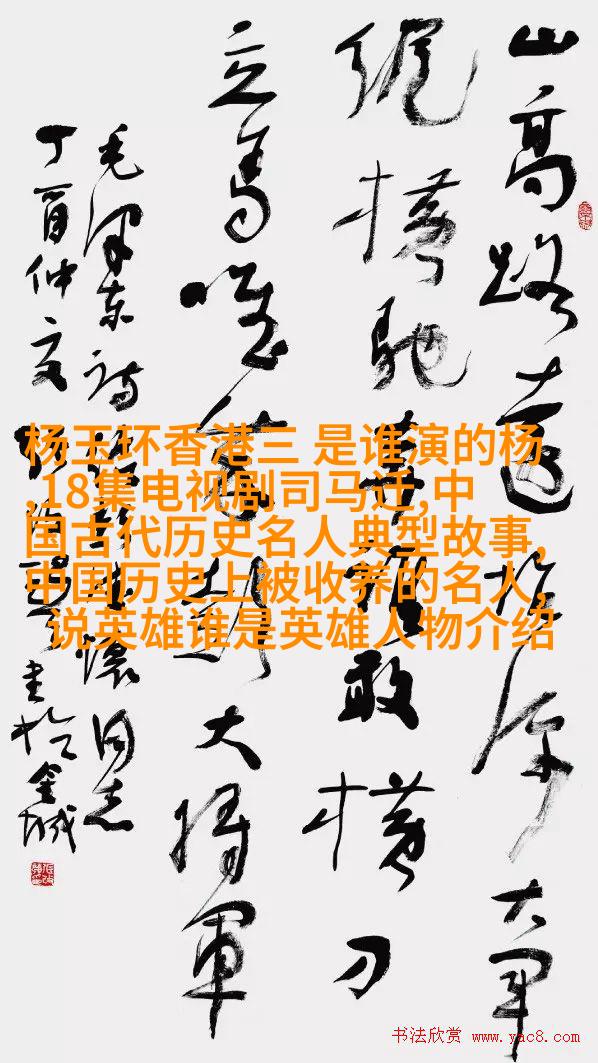 山高路遠坑深大军
縱橫馳奔誰敢橫刀
立馬唯我彭大將軍
毛泽东诗彭德懷同志
丁酉仲夏書於金城
杨玉环香港三 是谁演的杨
,18集电视剧司马迁,中
国古代历史名人典型故事,
中国历史上被收养的名人,
说英雄谁是英雄人物介绍
书法欣赏 www.yac8.com